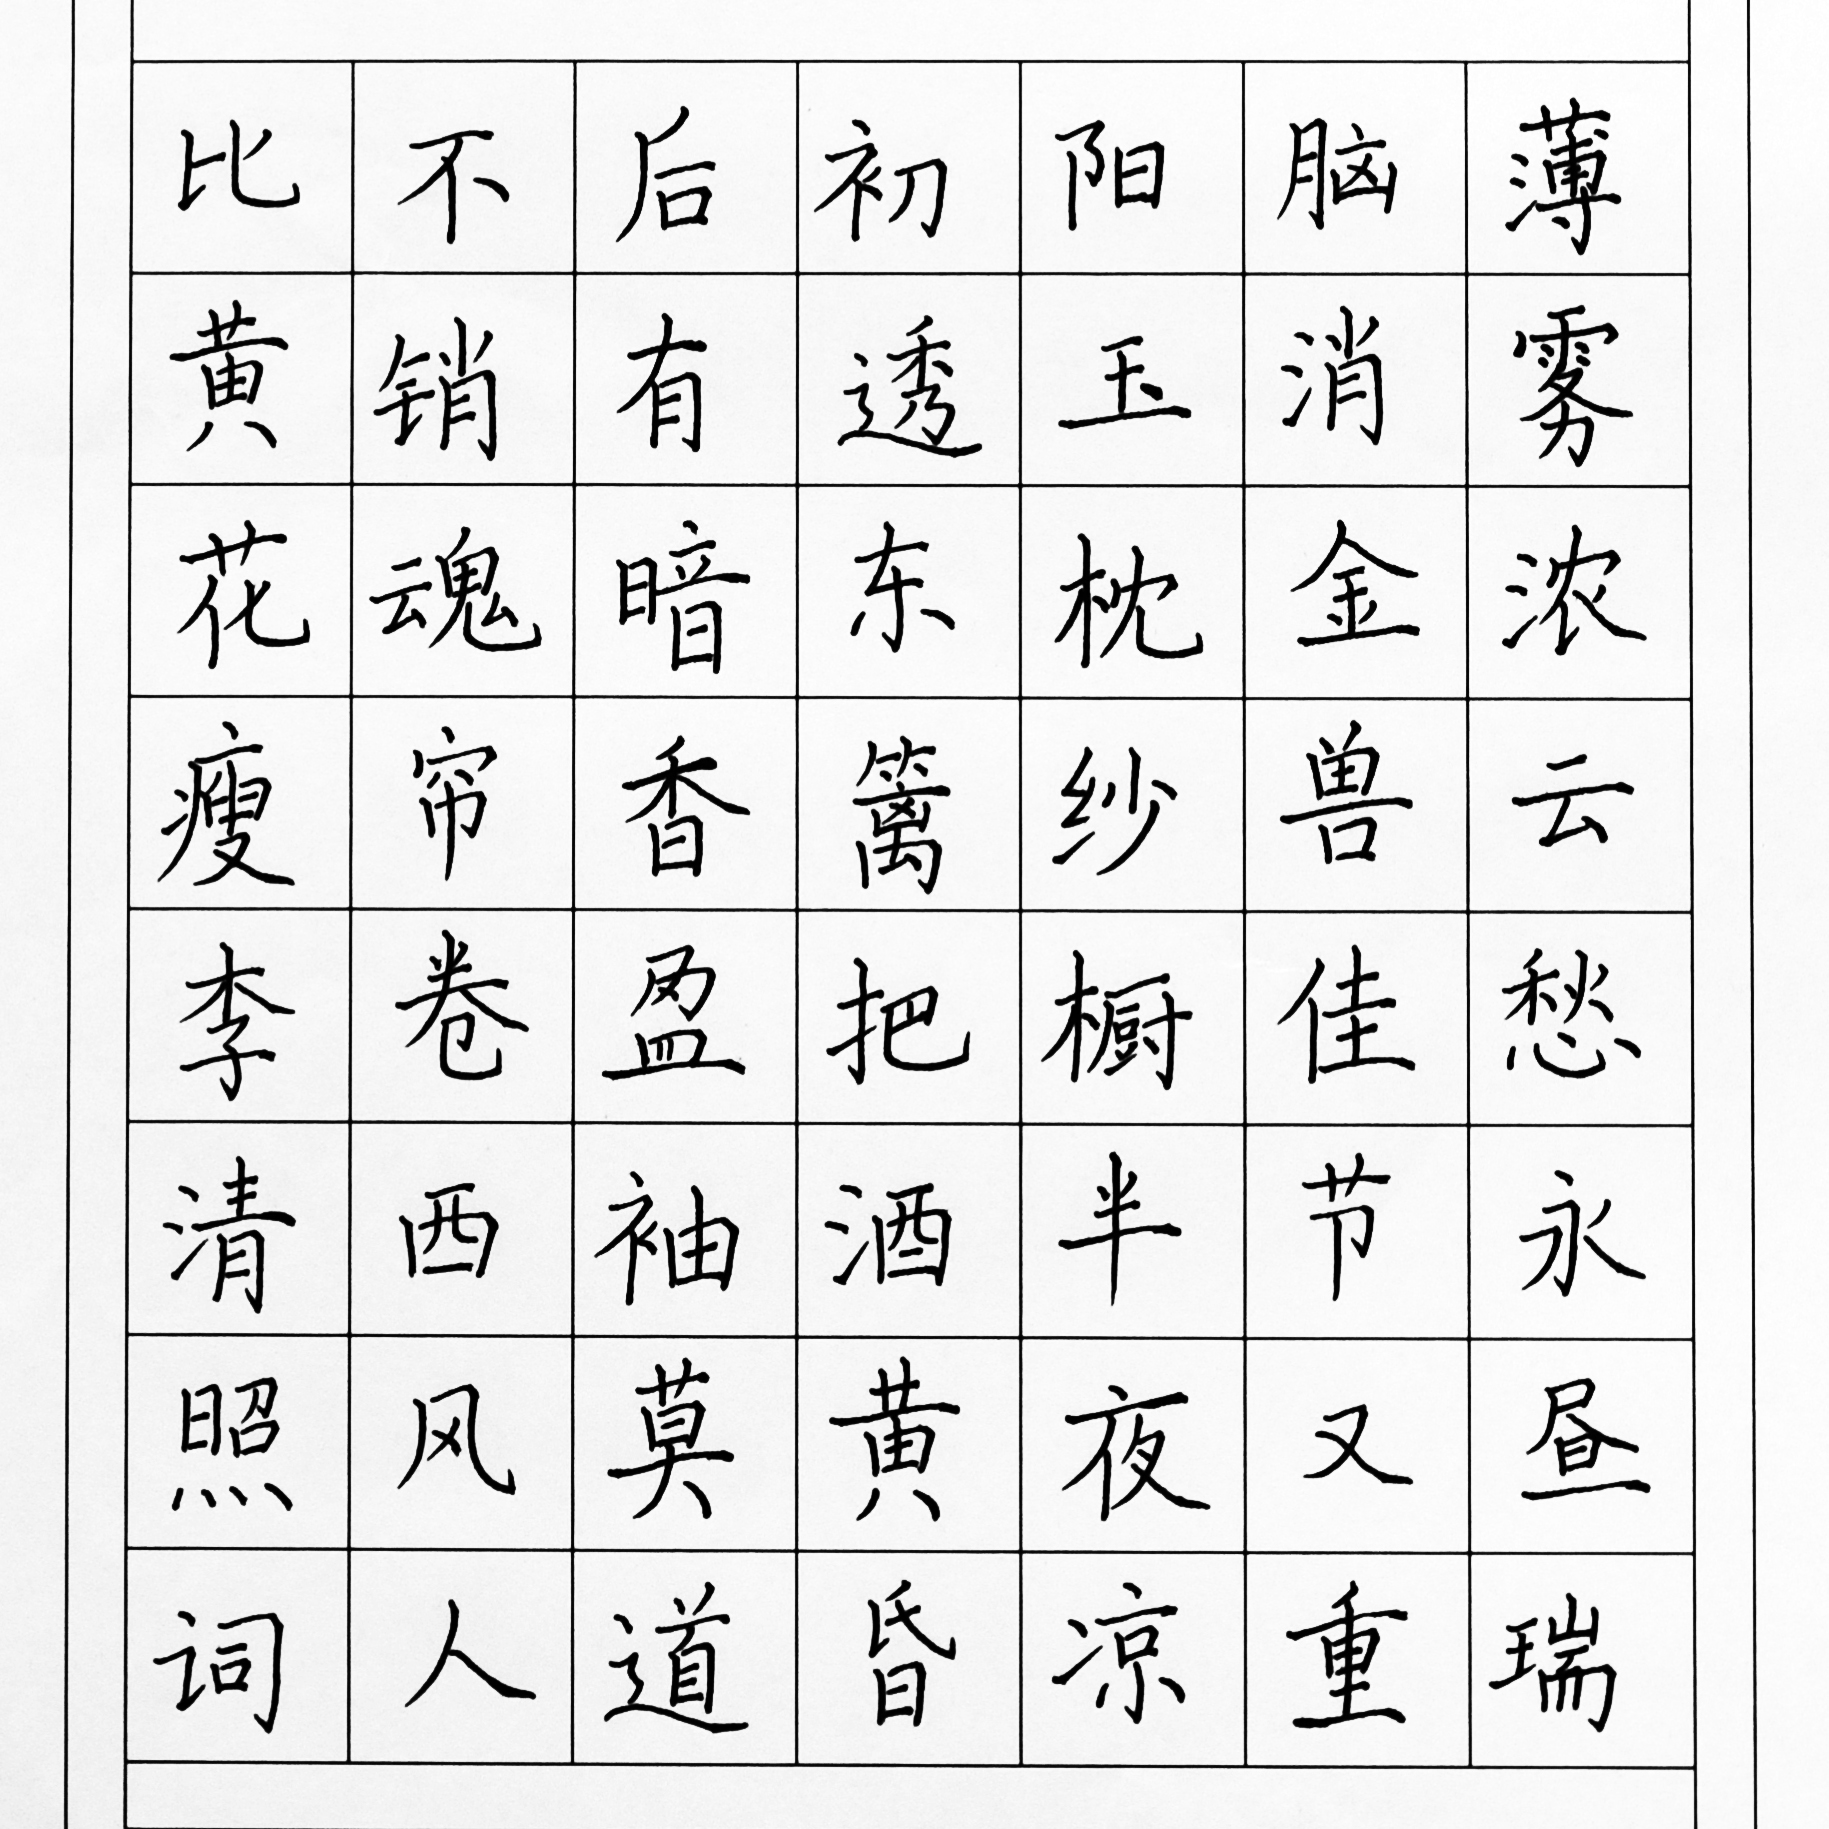 薄雾浓云愁永昼瑞
脑消金兽佳节又重
阳玉枕纱橱半夜凉
初透东篱把酒黄昏
后有暗香盈袖莫道
不销魂帘卷西风人
比黄花瘦李清照词